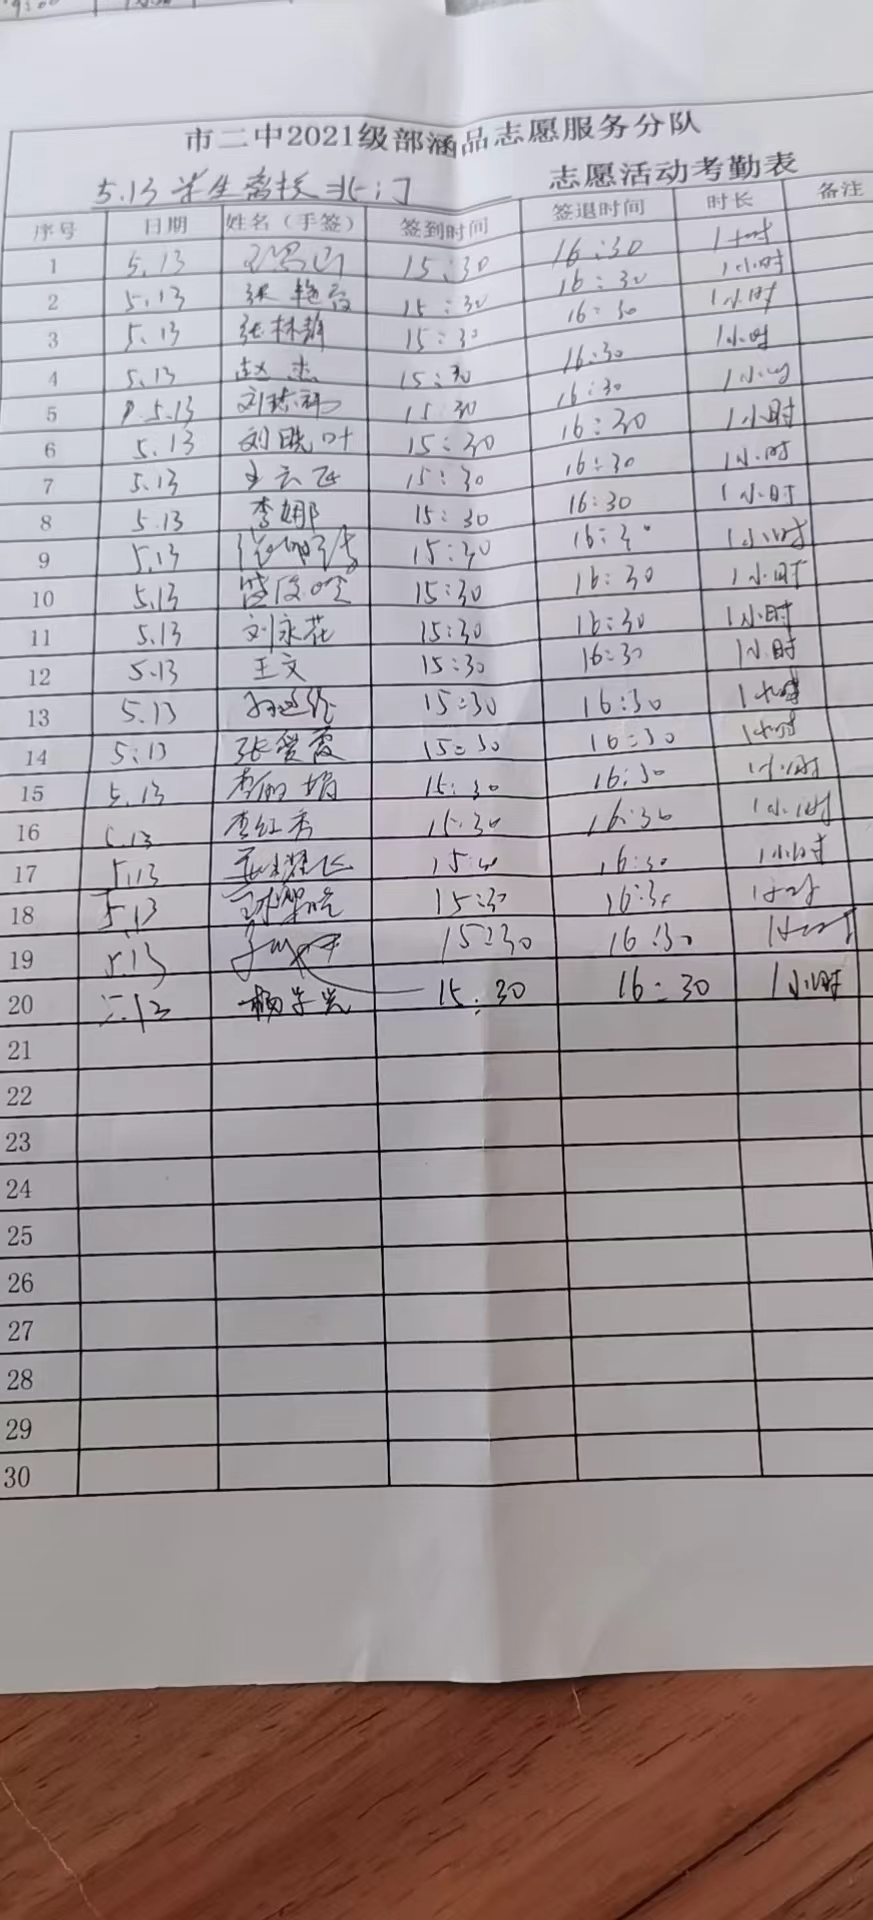 市二中2021级部涵品志愿服务分队
5.13 学生离校北门 志愿活动考勤表
序号 日期 姓名（手签） 签到时间 签退时间 时长 备注
1 5.13 15:30 16:30 1小时
2 5.13 张艳霞 15:30 16:30 1小时
3 5.13 张林静 15:30 16:30 1小时
4 5.13 赵杰 15:30 16:30 1小时
5 5.13 15:30 16:30 1小时
6 5.13 刘晓叶 15:30 16:30 1小时
7 5.13 王云飞 15:30 16:30 1小时
8 5.13 李娜 15:30 16:30 1小时
9 5.13 15:30 16:30 1小时
10 5.13 15:30 16:30 1小时
11 5.13 刘永花 15:30 16:30 1小时
12 5.13 王文 15:30 16:30 1小时
13 5.13 15:30 16:30 1小时
14 5.13 张爱霞 15:30 16:30 1小时
15 5.13 李丽娟 15:30 16:30 1小时
16 5.13 李红秀 15:30 16:30 1小时
17 5.13 15:30 16:30 1小时
18 5.13 15:30 16:30 1小时
19 5.13 15:30 16:30 1小时
20 5.13 15:30 16:30 1小时
21
22
23
24
25
26
27
28
29
30